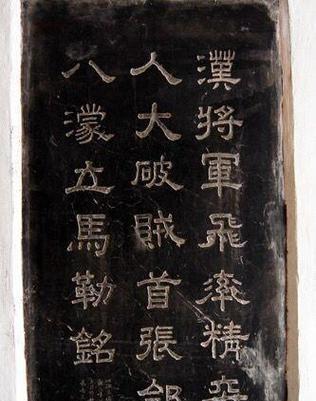 漢將軍飛率精卒
人大破賊首張郃
八濛立馬勒銘